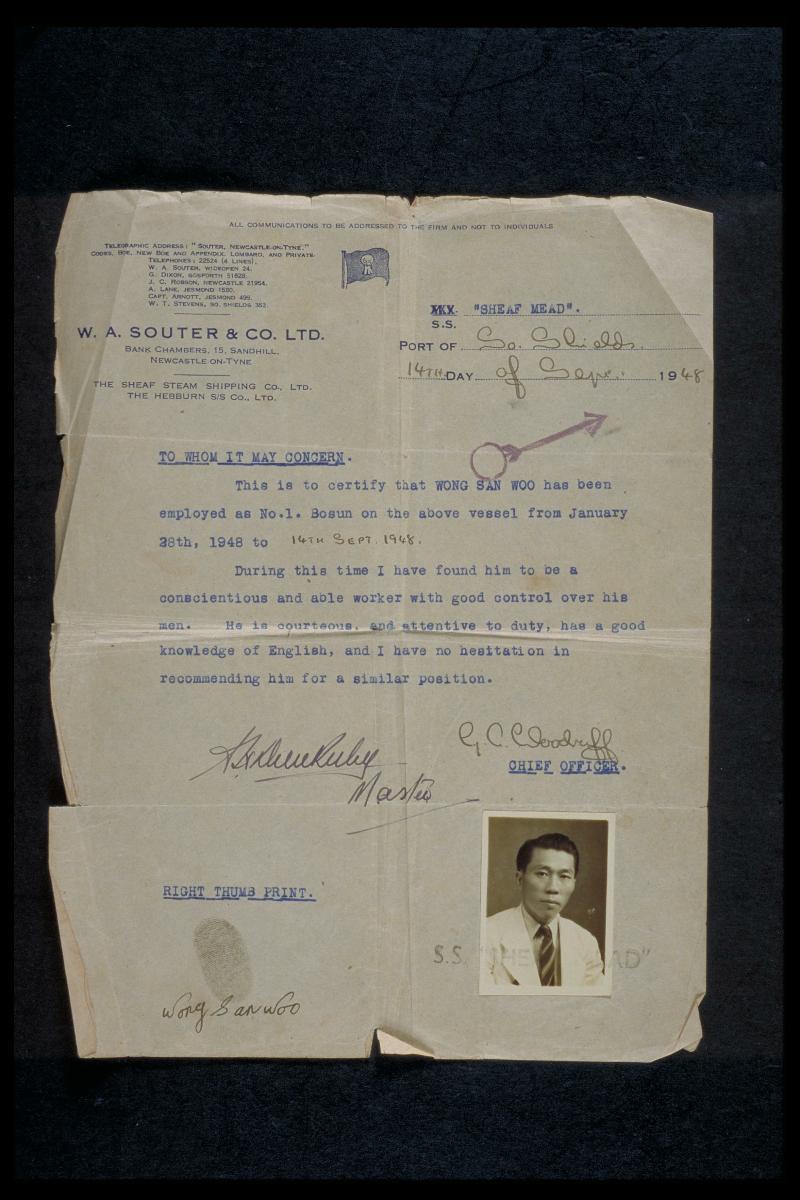 ALL COMMUNICATIONS TO BE ADDRESSED TO THE FIRM AND NOT TO INDIVIDUALS
TELEGRAPHIC ADDRESS: "SOUTER, NEWCASTLE-ON-TYNE."
CODES, BOE, NEW BOE AND APPENDIX, LOMBARD, AND PRIVATE
TELEPHONES: 22524 (4 LINES).
W. A. SOUTER, WIDEOPEN 24.
G. DIXON, GOSFORTH 51828.
J. C. ROBSON, NEWCASTLE 21954.
A. LANE, JESMOND 1580.
CAPT. ARNOTT, JESMOND 499.
W. T. STEVENS, SO. SHIELDS 352.
W. A. SOUTER & CO. LTD.
BANK CHAMBERS, 15, SANDHILL,
NEWCASTLE-ON-TYNE
THE SHEAF STEAM SHIPPING CO., LTD.
THE HEBBURN S/S CO., LTD.
"SHEAF MEAD".
S.S.
PORT OF So. Shields.
14TH DAY of Sept. 1948
TO WHOM IT MAY CONCERN.
This is to certify that WONG SAN WOO has been
employed as No.1. Bosun on the above vessel from January
28th, 1948 to 14TH SEPT. 1948.
During this time I have found him to be a
conscientious and able worker with good control over his
men. He is courteous, and attentive to duty, has a good
knowledge of English, and I have no hesitation in
recommending him for a similar position.
G. C. Woodruff
CHIEF OFFICER.
Master
RIGHT THUMB PRINT.
S.S. "SHE AD"
Wong San Woo